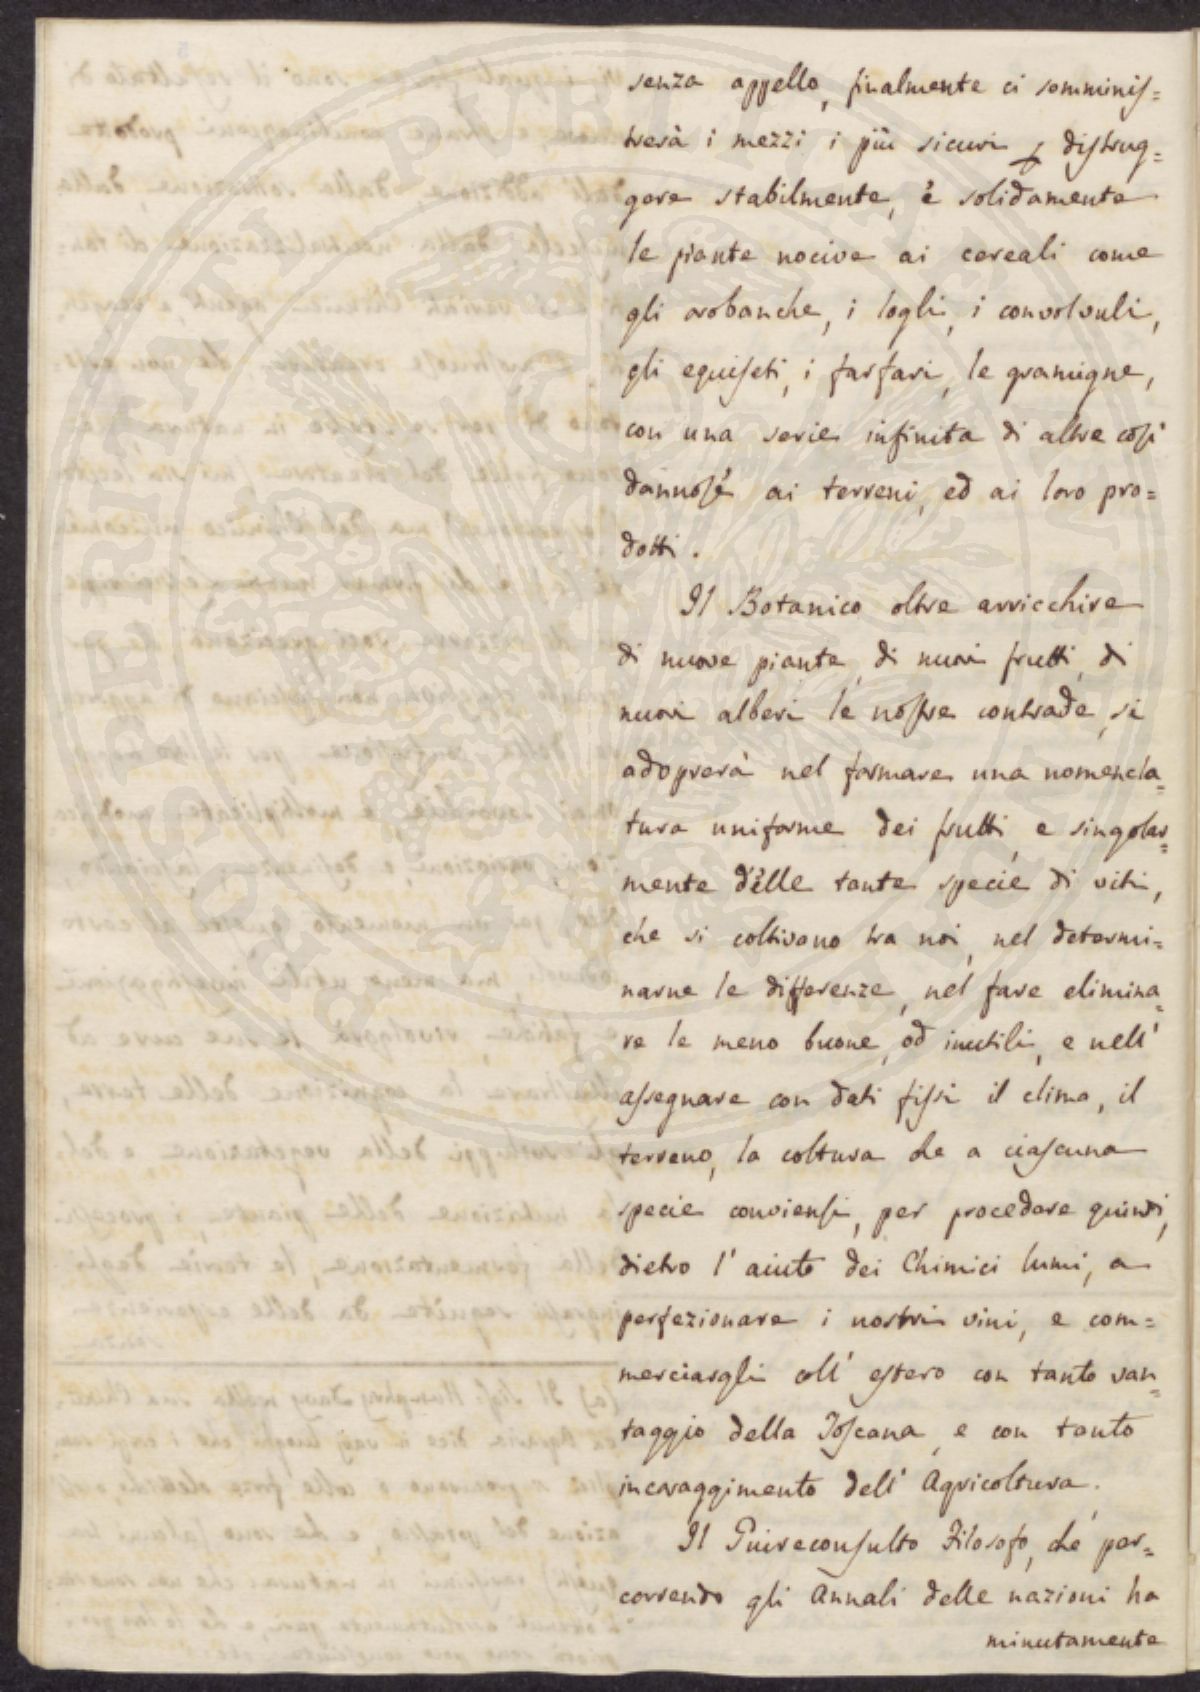 senza appello, finalmente ci somminis=
trerà i mezzi i più sicuri p distrug=
gere stabilmente, è solidamente
le piante nocive ai cereali come
gli orobanche, i logli, i convolvuli,
gli equiseti, i farfari, le gramigne,
con una serie infinita di altre così
dannose ai terreni, ed ai loro pro=
dotti.
Il Botanico oltre arricchire
di nuove piante, di nuovi frutti, di
nuovi alberi le nostre contrade, si
adoprerà nel formare una nomencla=
tura uniforme dei frutti, e singolar=
mente delle tante specie di viti,
che si coltivano tra noi, nel determi=
narne le differenze, nel fare elimina=
re le meno buone, od inutili, e nell'
assegnare con dati fissi il clima, il
terreno, la coltura che a ciascuna
specie conviensi, per procedere quindi,
dietro l'aiuto dei Chimici lumi, a
perfezionare i nostri vini, e com=
merciargli coll' estero con tanto van=
taggio della Toscana, e con tanto
incoraggimento dell' Agricoltura.
Il Guireconsulto Filosofo, che per=
correndo gli Annali delle nazioni ha
minutamente